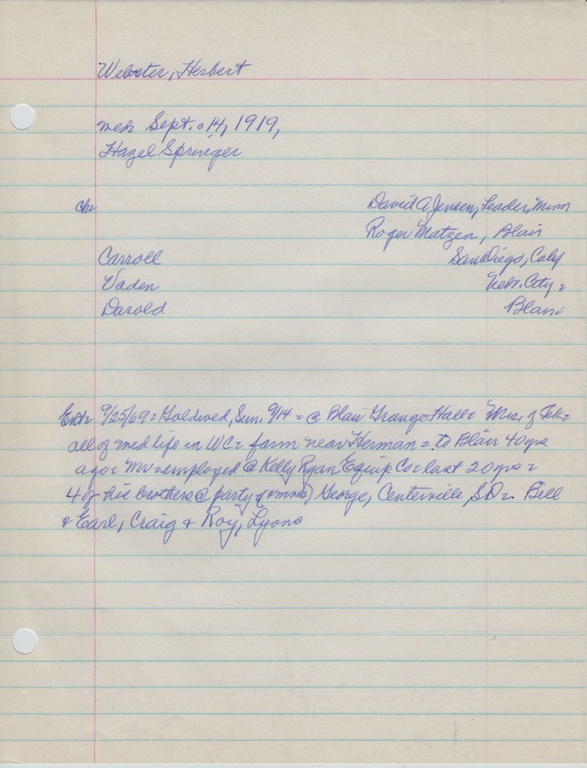 Webster, Herbert
med. Sept. 14, 1919,
Hazel Springer
ch: David A Jensen, Leader, Minn
Roger Matzen, Blair
Carroll San Diego, Calif
Vaden Neb. City &
Darold Blair
Entr. 9/25/69 = Gold wed, Sun. 9/14 = @ Blair Grange Hall = Mrs. of Tek =
all of med life in WC = farm near Herman = to Blair 40 yrs
ago = Mr = employed @ Kelly Ryan Equip Co = last 20 yrs =
4 of his brothers @ party George, Centerville SD = Bill
& Earl, Craig & Roy, Lyons